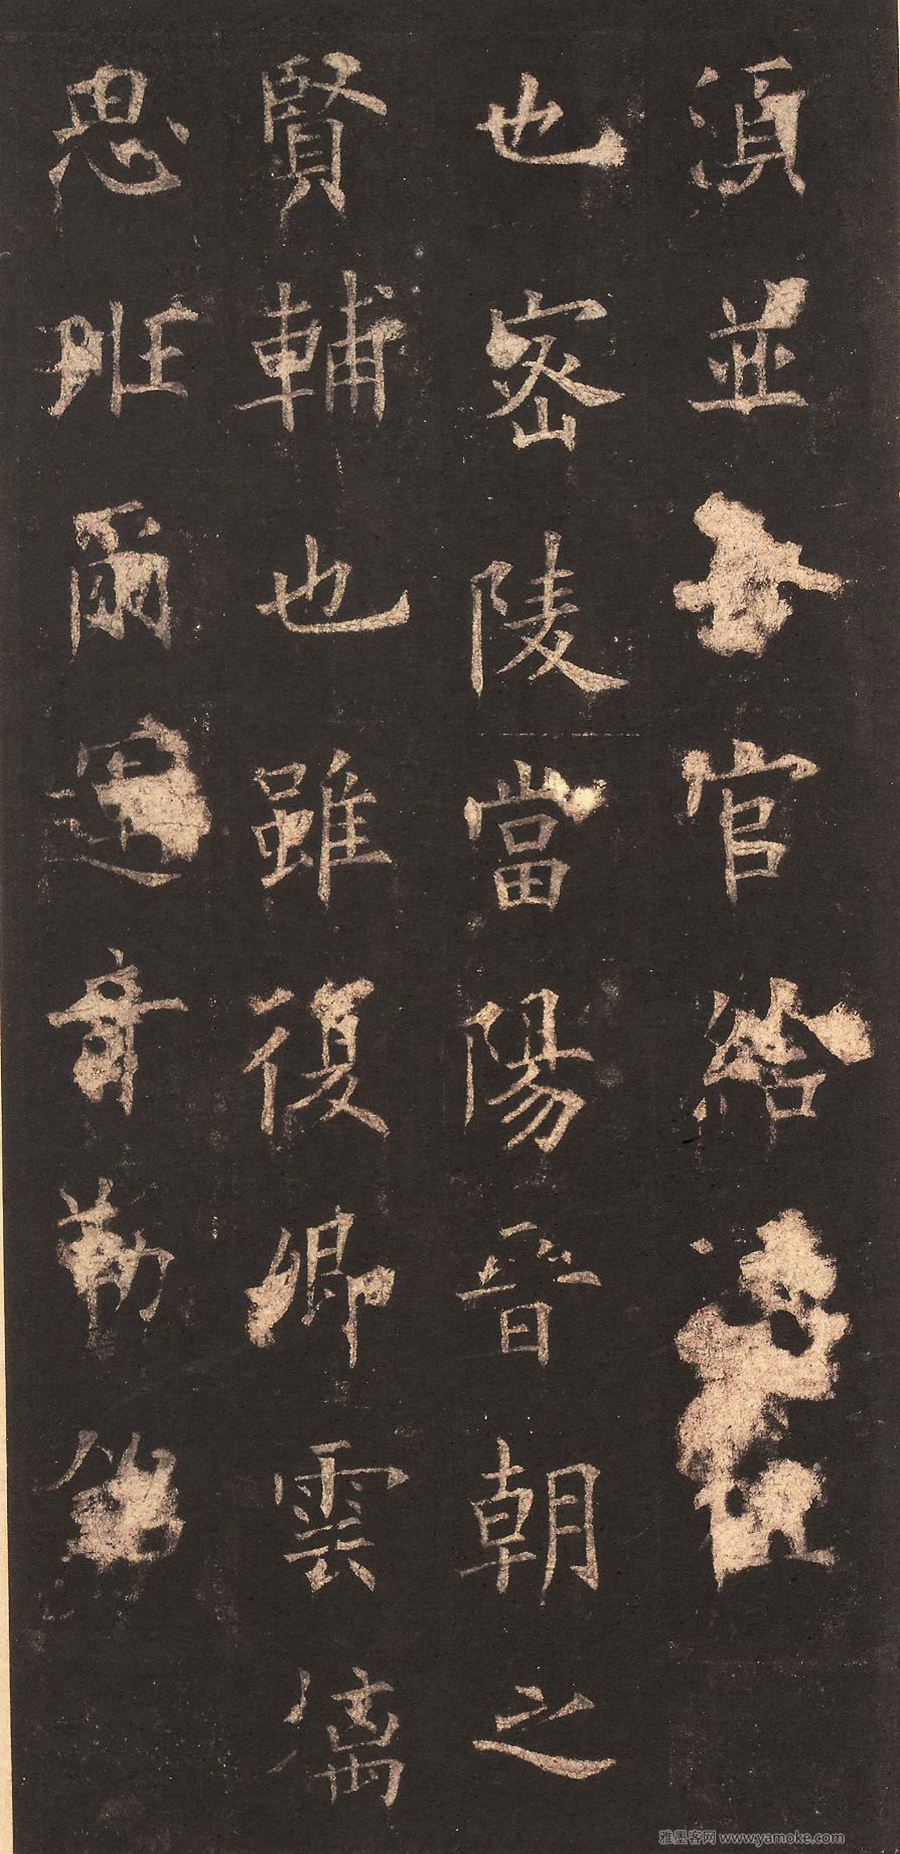 須並官給
也密陵當陽晉朝之
賢輔也雖復卿雲
思班爾運勒銘
雅墨客网 www.yamoke.com